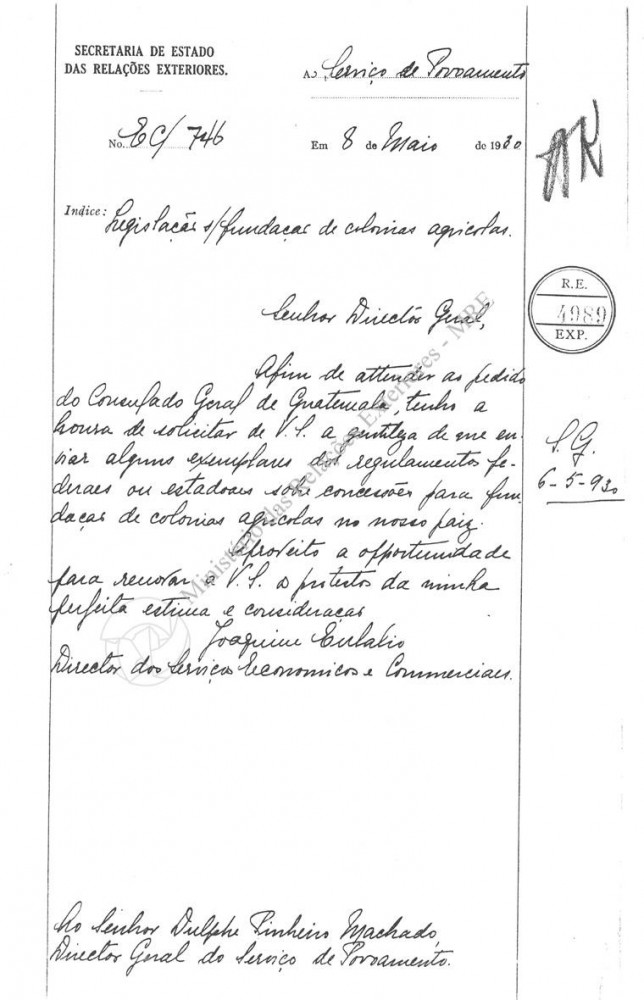 SECRETARIA DE ESTADO
DAS RELAÇÕES EXTERIORES.
Ao Serviço de Povoamento
No. EC/ 746
Em 8 de Maio de 1930
Indice: Legislação s/ fundaçao de colonias agricolas.
R.E.
4989
EXP.
Senhor Director Geral,
Afim de attender ao pedido
do Consulado Geral de Guatemala, tenho a
honra de solicitar de V. S. a gentileza de me en-
viar alguns exemplares dos regulamentos fe-
deraes ou estadoaes sobre concessões para fun-
daçao de colonias agricolas no nosso paiz.
Aproveito a opportunidade
para renovar a V. S. os protestos da minha
perfeita estima e consideraçao
Joaquim Eulalio
Director dos Serviços Economicos e Commerciaes.
S. G.
6-5-930
Ao Senhor Dulphe Pinheiro Machado,
Director Geral do Serviço de Povoamento.
Ministério das Relações Exteriores - MRE